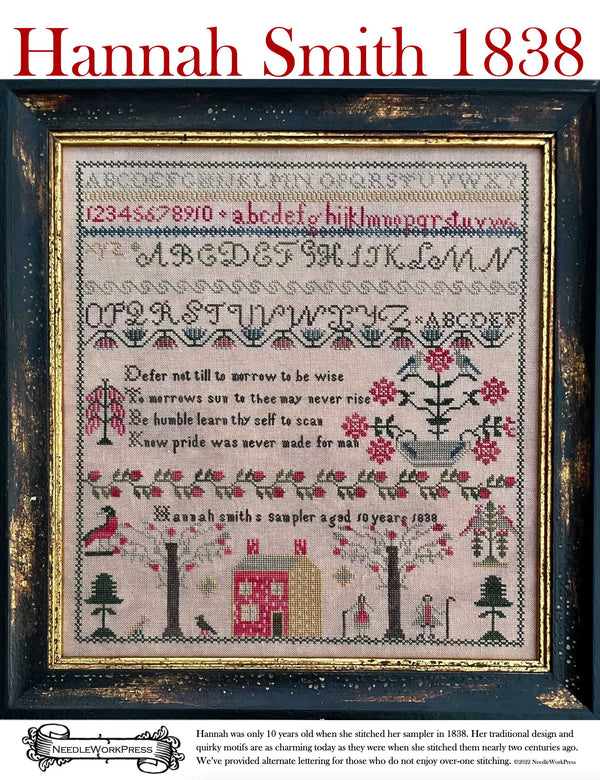 Hannah Smith 1838
ABCDEFGHIJKLMNOPQRSTUVWXY
12345678910 * abcdefghijklmnopqrstuvw
xyz ABCDEFGHIJKLMN
OPQRSTUVWXYZ * ABCDEF
Defer not till to morrow to be wise
To morrows sun to thee may never rise
Be humble learn thy self to scan
Know pride was never made for man
Hannah smith s sampler aged 10 years 1838
NeedleWorkPress
Hannah was only 10 years old when she stitched her sampler in 1838. Her traditional design and
quirky motifs are as charming today as they were when she stitched them nearly two centuries ago.
We've provided alternate lettering for those who do not enjoy over-one stitching. ©2022 NeedleWorkPress